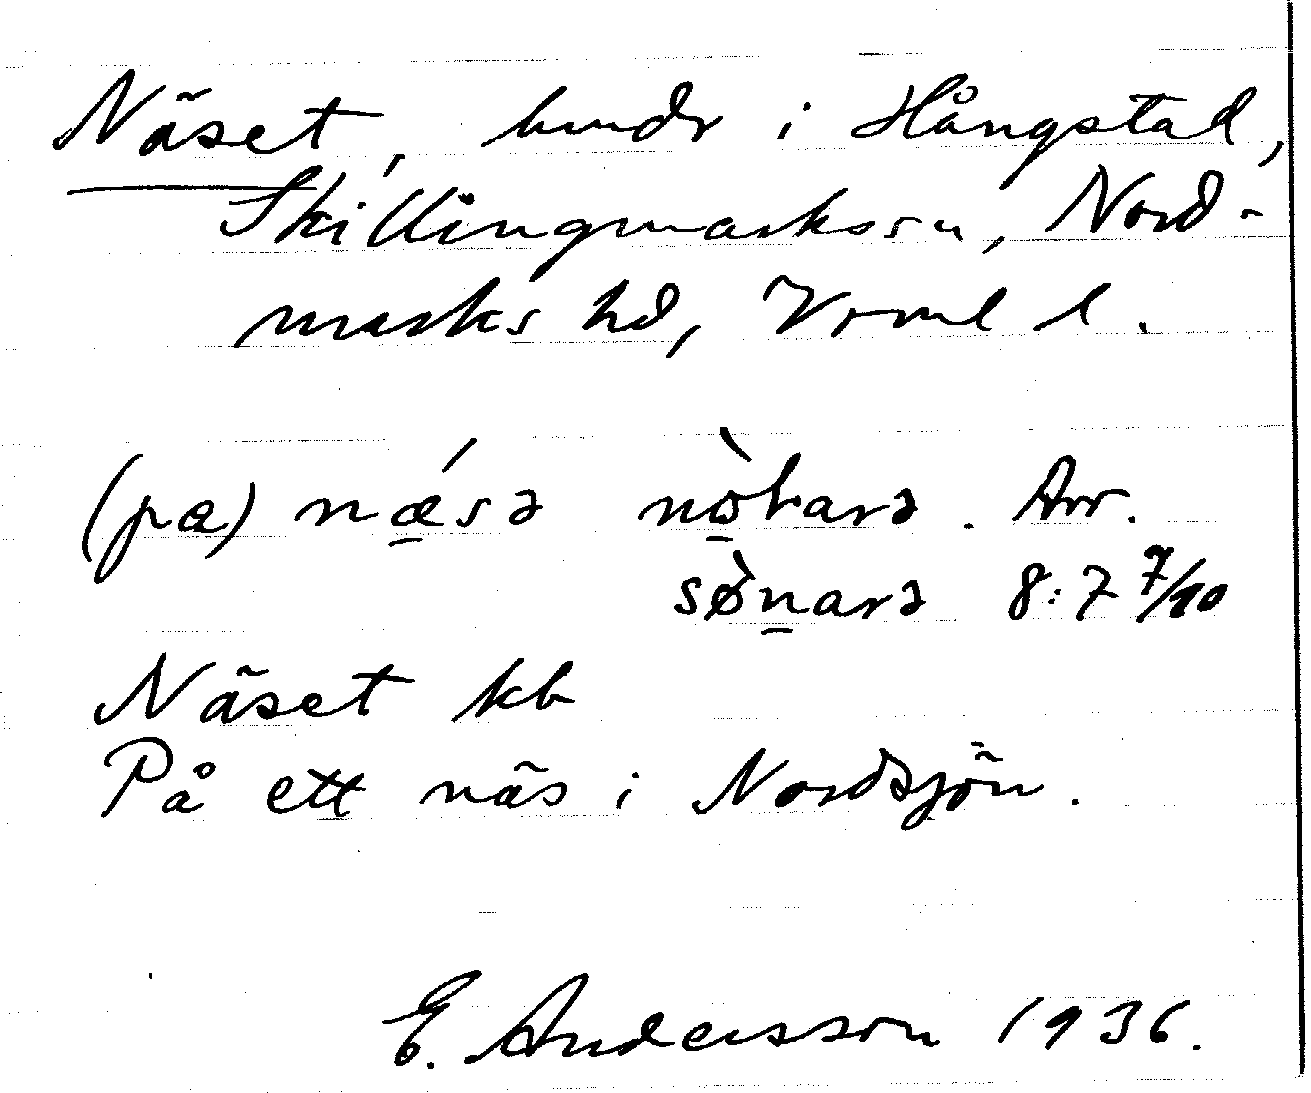 Näset, hmdr i Hångstad,
Skillingmarks sn, Nord-
marks hd, Vrml l.
(pæ) nǽ̱sə nὼ̱ṟarə. Arr.
sø̀ṉarə 8:7 7/10
Näset kb
På ett näs i Nordsjön.
E. Andersson 1936.